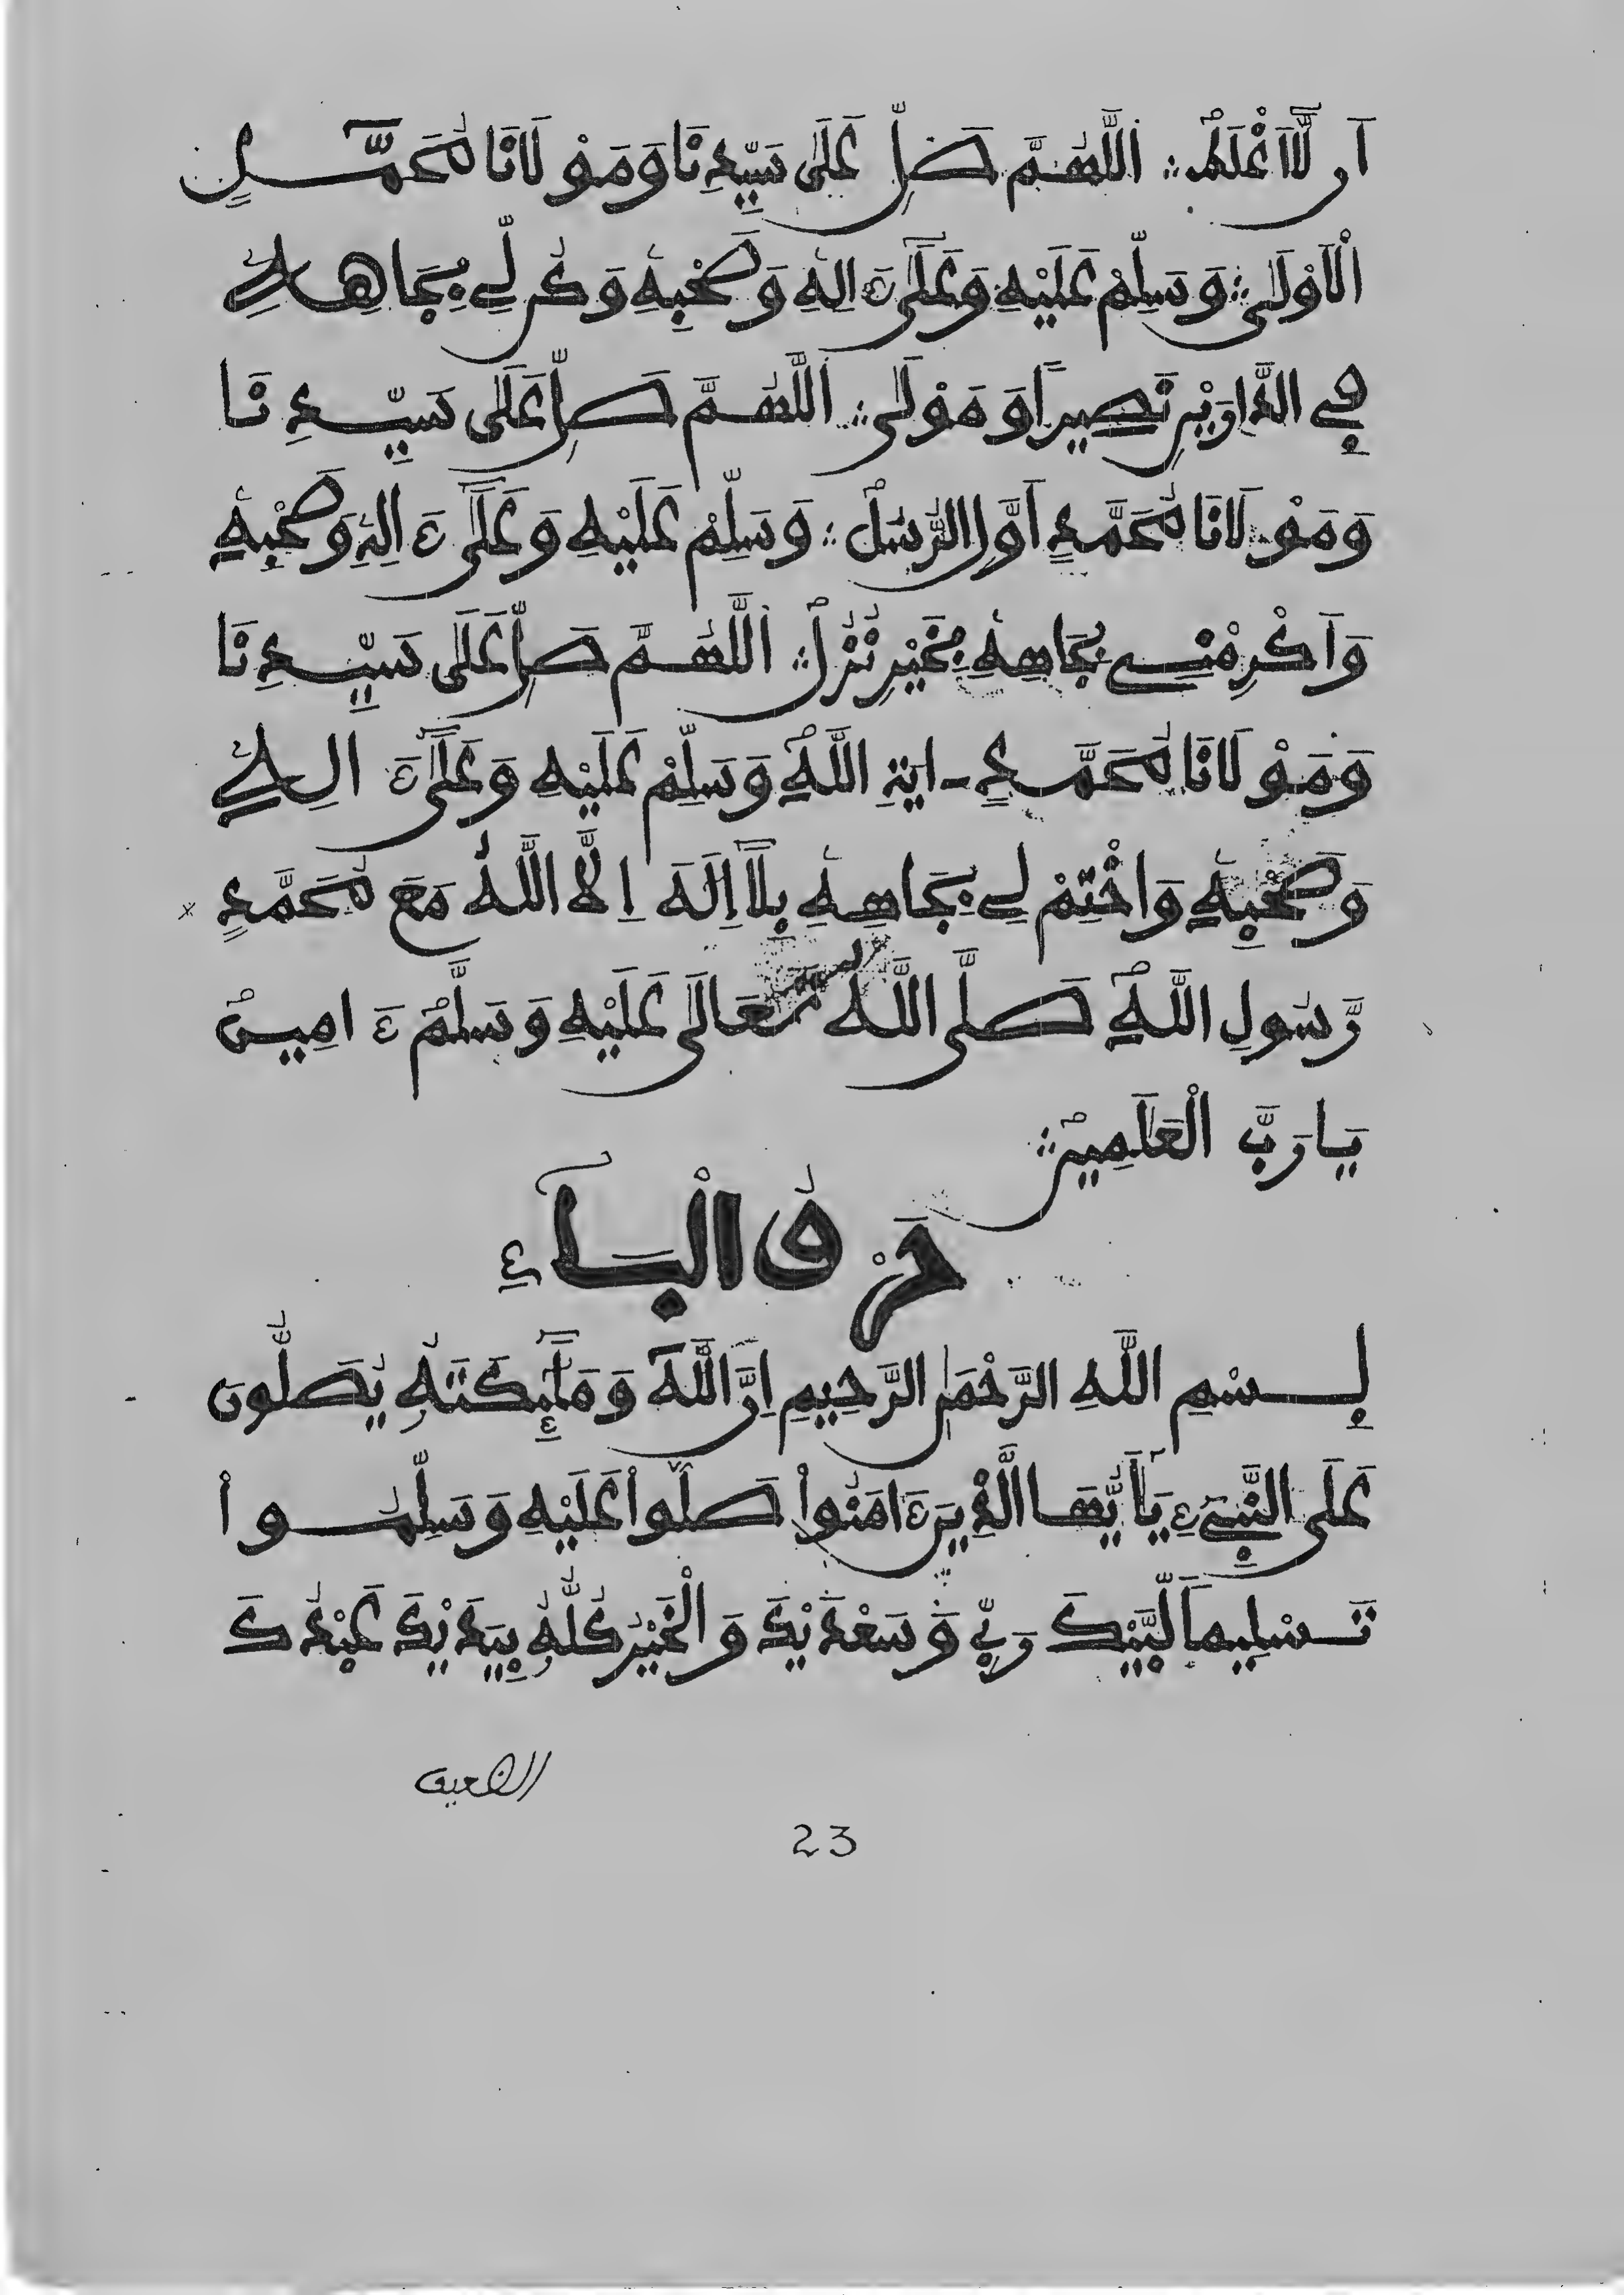 أَن لَّا أَعْلَمُ ؞ اَللَّهُمَّ صَلِّ عَلَى سَيِّدِنَا وَمَوْلَانَا مُحَمَّدٍ
الْأَوْلَى ؞ وَسَلِّمْ عَلَيْهِ وَعَلَى ءَالِهِ وَصَحْبِهِ وَكُن لِّي بِجَاهِهِ
فِي الدَّارَيْنِ نَصِيرًا وَمَوْلَى ؞ اَللَّهُمَّ صَلِّ عَلَى سَيِّدِنَا
وَمَوْلَانَا مُحَمَّدٍ أَوَّلِ الرُّسُلْ ؞ وَسَلِّمْ عَلَيْهِ وَعَلَى ءَالِهِ وَصَحْبِهِ
وَأَكْرِمْنِي بِجَاهِهِ بِخَيْرِ نُزُلْ ؞ اَللَّهُمَّ صَلِّ عَلَى سَيِّدِنَا
وَمَوْلَانَا مُحَمَّدٍ ـايَةِ اللَّهِ وَسَلِّمْ عَلَيْهِ وَعَلَى ءَالِهِ
وَصَحْبِهِ وَاخْتِمْ لِي بِجَاهِهِ بِلَا إِلَهَ إِلَّا اللَّهُ مَعَ مُحَمَّدٍ
رَّسُولِ اللَّهِ صَلَّى اللَّهُ تَعَالَى عَلَيْهِ وَسَلَّمَ ءَامِينْ
يَا رَبَّ الْعَلَمِينْ ؞
حَرْفُ الْبَاءِ
بِسْمِ اللَّهِ الرَّحْمَنِ الرَّحِيمِ إِنَّ اللَّهَ وَمَلَئِكَتَهُ يُصَلُّونَ
عَلَى النَّبِيءِ يَا أَيُّهَا الَّذِينَ ءَامَنُواْ صَلُّواْ عَلَيْهِ وَسَلِّمُواْ
تَسْلِيماً لَبَّيْكَ رَبِّي وَسَعْدَيْكَ وَالْخَيْرُ كُلُّهُ بِيَدَيْكَ عَبْدُكَ
الضعيف
23